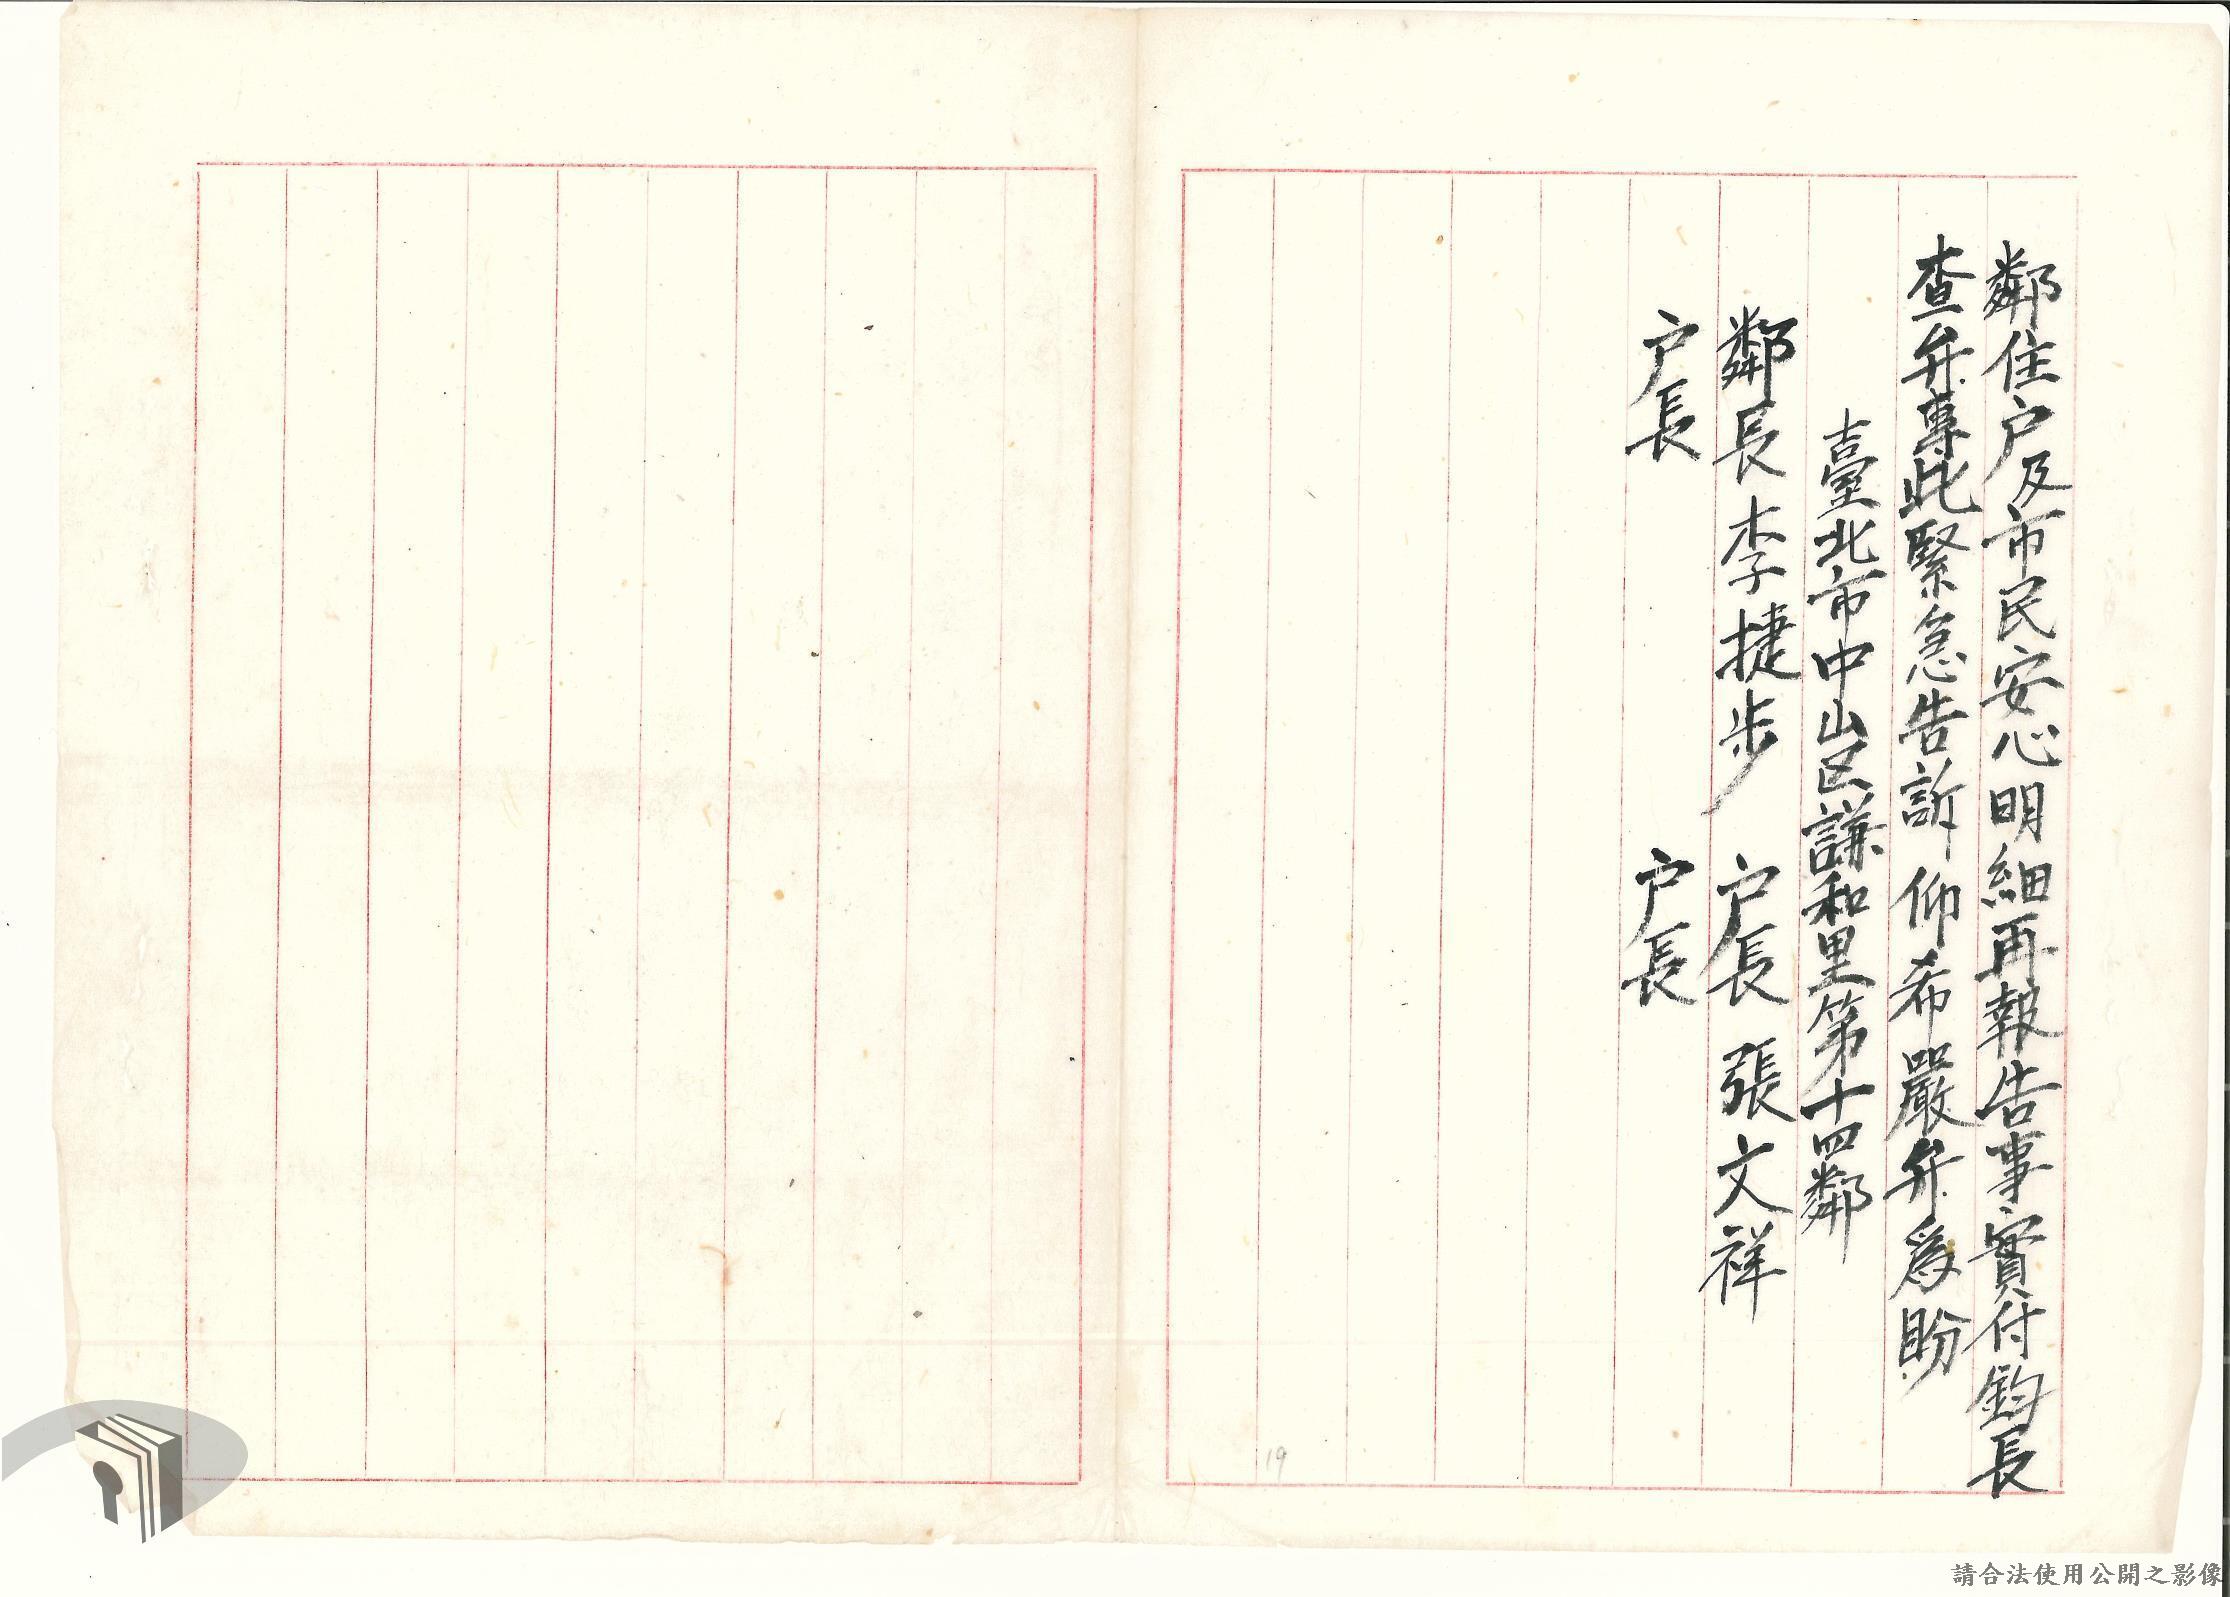 鄰住户及市民安心明細再報告事實付鈞長
查弁專此緊急告訴仰希嚴弁為盼
臺北市中山区謙和里第十四鄰
鄰長李捷步　户長張文祥
户長　户長
19
請合法使用公開之影像